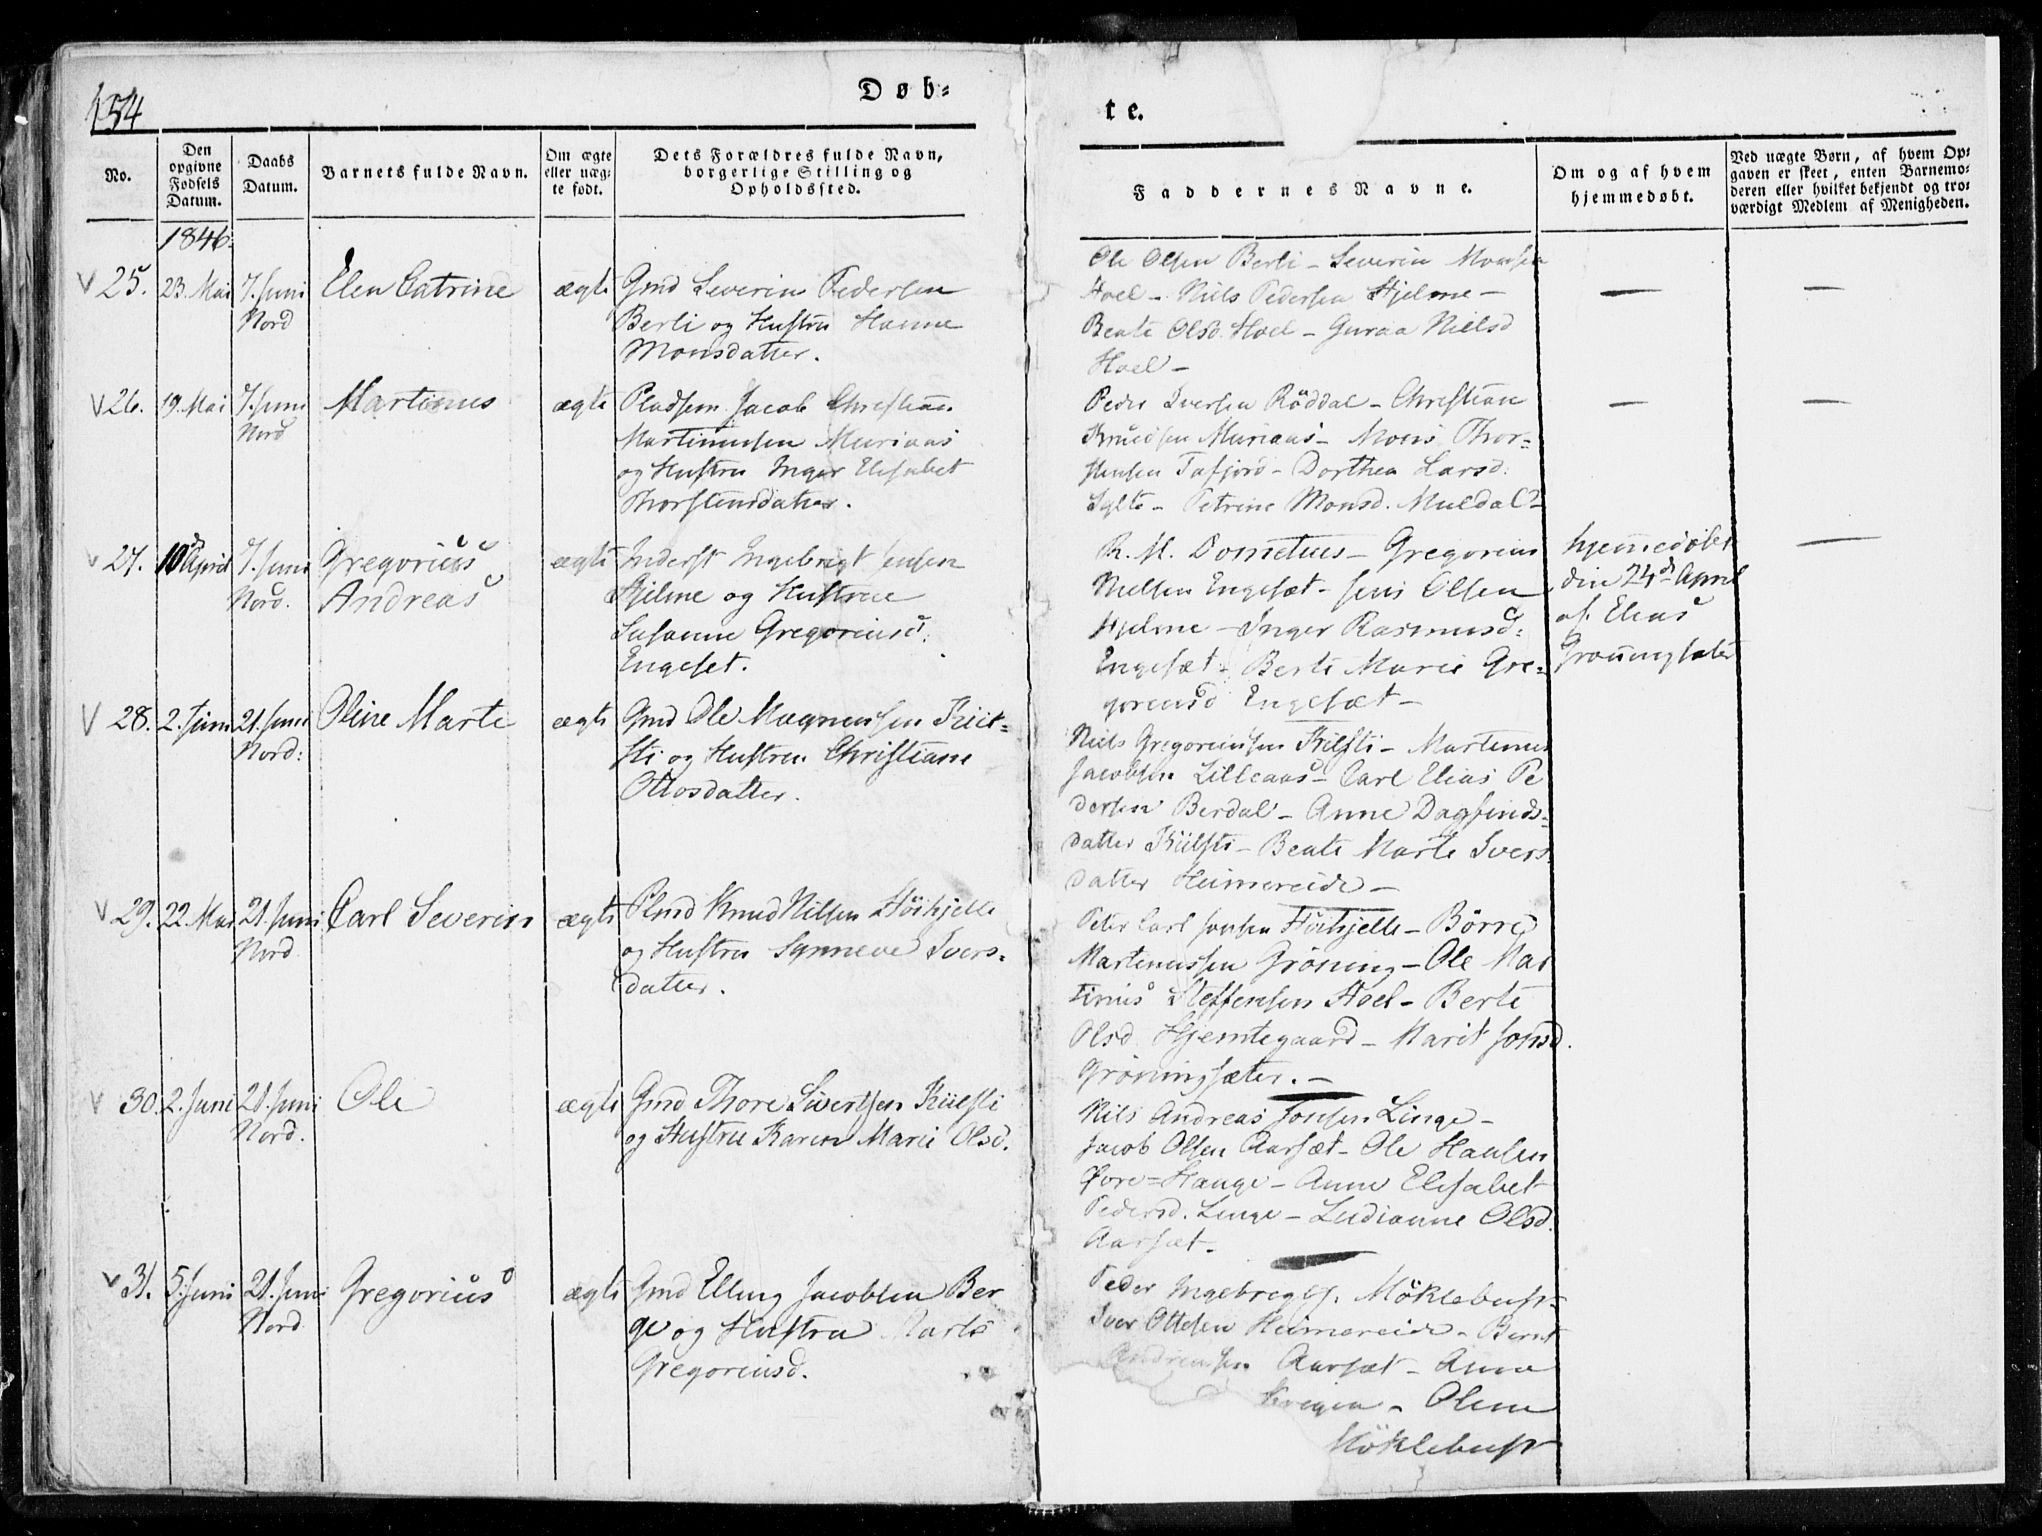 154
Døb-
te.
No.
Den opgivne Fødsels Datum.
Daabs Datum.
Barnets fulde Navn.
Om ægte eller uægte født.
Dets Forældres fulde Navn, borgerlige Stilling og Opholdssted.
Faddernes Navne.
Om og af hvem hjemmedøbt.
Ved uægte Børn, af hvem Opgaven er skeet, enten Barnemoderen eller hvilket bekjendt og troværdigt Medlem af Menigheden.
1846.
25. 23. Mai 7. Juni Nord Elen Catrine ægte
Gmd Severin Pedersen
Berli og Hustru Hanne
Monsdatter.
Ole Olsen Berli - Severin Monsen
Hoel - Niels Pedersen Hjelme -
Beate Olsd. Hoel - Guraa Nielsd
Hoel -
26. 19. Mai 7. Juni Nord Martinus ægte
Pladsm. Jacob Christian
Martinussen Muriaas
og Hustru Inger Elisabet
Thorstensdatter.
Peder Iversen Røddal - Christian
Knudsen Muriaas - Mons Thor-
stensen Tafjord - Dorthea Larsd.
Sylte - Petrine Monsd. Muldal
27. 10de April 7. Juni Nord. Gregorius
Andreas ægte
Inderst Ingebrigt Jensen
Hjelme og Hustrue
Susanne Gregoriusd.
Engeset.
R. M. - Gregorius
Nielsen Engesæt - Jens Olsen
Hjelme - Inger Rasmusd:
Engesæt - Berte Marie Gre-
goriusd Engesæt -
hjemmedøbt
den 24de April
af Elias
Grøningsæter
28. 2. Juni 21. Juni Nord: Oline Marte ægte
Gmd Ole Magnussen Kiil-
sti og Hustru Christiane
Ottosdatter.
Niels Gregoriussen Kilsti - Martinus
Jacobsen Lilleaas - Carl Elias Pe
dersen Berdal - Anne Dagfinds-
datter Kiilsti - Beate Marte Ivers
datter Heimereide -
29. 22. Mai 21. Juni Nord Carl Severin ægte
Plmd Knud Nilsen Høihjelle
og Hustru Synneve Ivers-
datter.
Peter Carl Jonsen Høihjelle - Børre
Martinussen Grøning - Ole Mar
tinus Steffensen Hoel - Berte
Olsd. Hjemtegaard - Marit Jonsd.
Grøningsæter. -
30. 2. Juni 21. Juni Nord. Ole ægte
Gmd Thore Sivertsen Kiilsti
og Hustru Karen Marie Olsd.
Nils Andreas Jonsen Linge -
Jacob Olsen Aarsæt - Ole Hansen
Øvre-Hauge - Anne Elisabet
Pedersd. Linge - Ludianne Olsd.
Aarsæt.
31. 5. Juni 21. Juni Nord Gregorius ægte
Gmd Elling Jacobsen Ber
ge og Hustru Marte
Gregoriusd.
Peder Ingebregts. Møklebust -
Iver Ottesen Heimereide - Bernt
Andreassen Aarsæt - Anne
- Oline
Møklebust